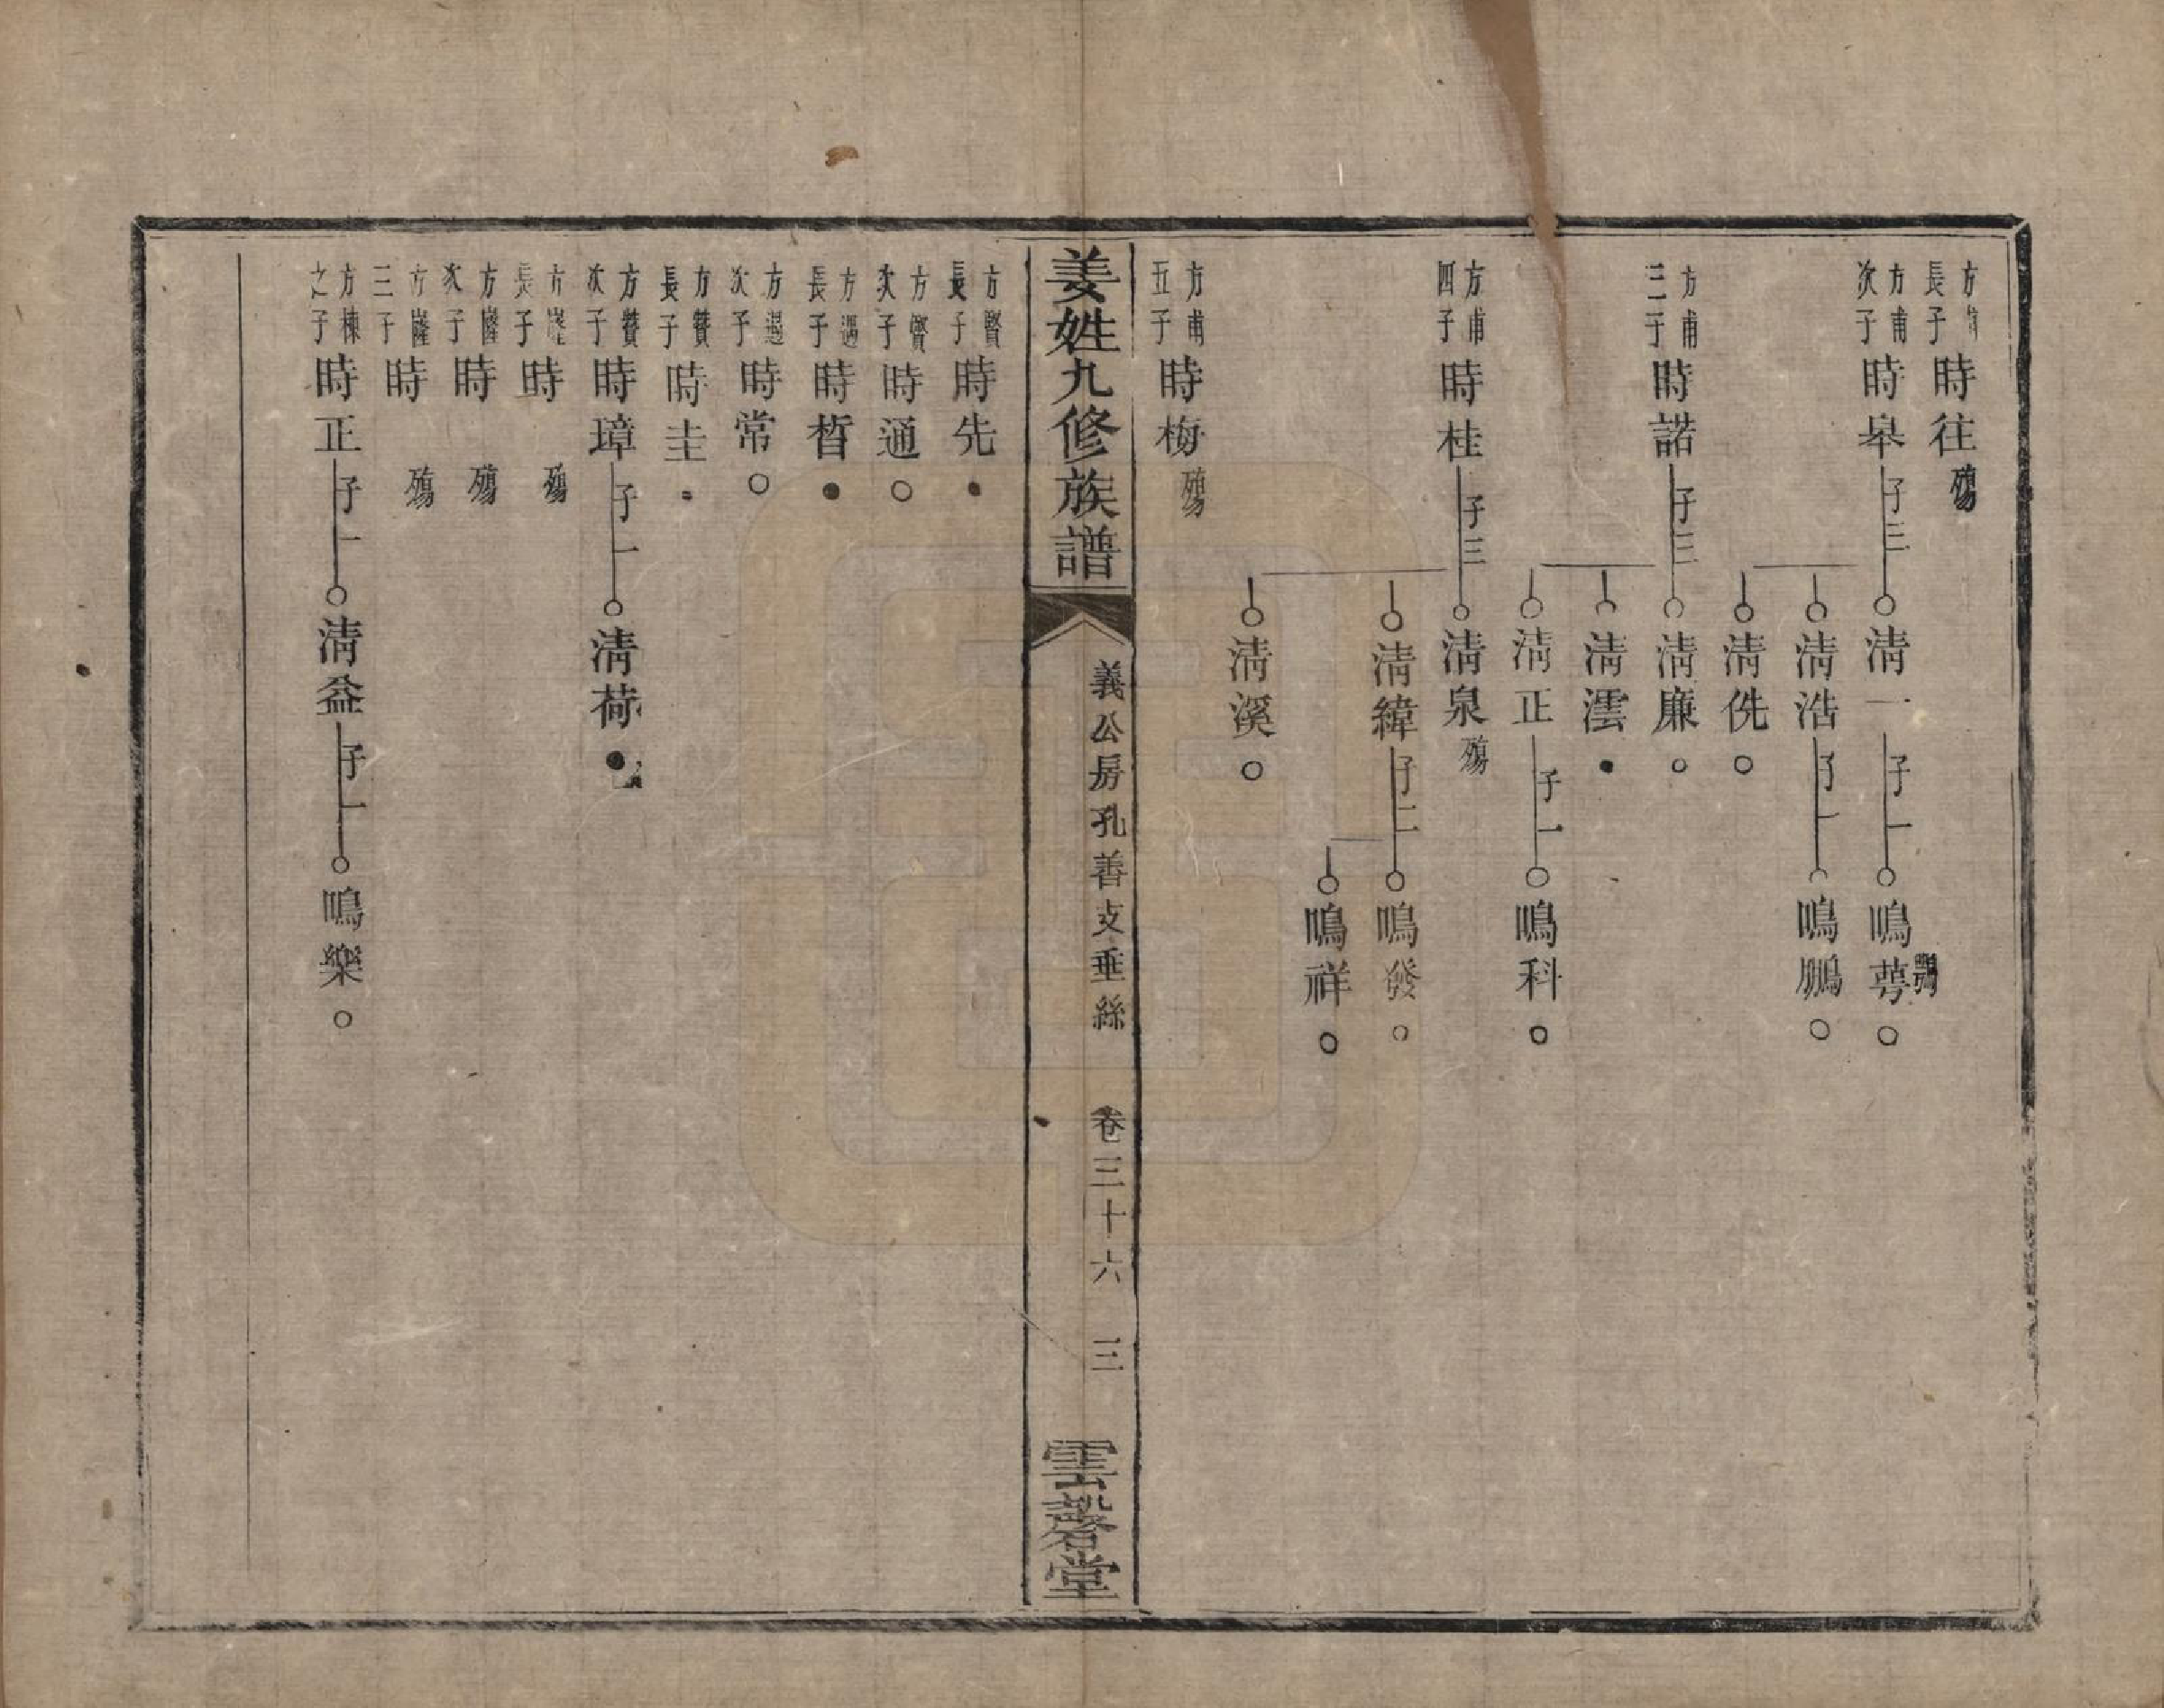 方甫長子時往殤
方甫次子時皋子三清一子一鳴蕚鸚
清浩子一鳴鵬
清侁
方甫三子時諾子三清廉
清澐
清正子一鳴科
方甫四子時桂子三清泉殤
清緯子二鳴發
鳴祥
清溪
方甫五子時梅殤
姜姓九修族譜
義公房孔善支垂絲 卷三十六 三
雲磬堂
方賢長子時先
方賢次子時通
方遇長子時晳
方遇次子時常
方贊長子時圭
方贊次子時璋子一清荷
方隆長子時 殤
方隆次子時 殤
方隆三子時 殤
方棟之子時正子一清益子一鳴樂